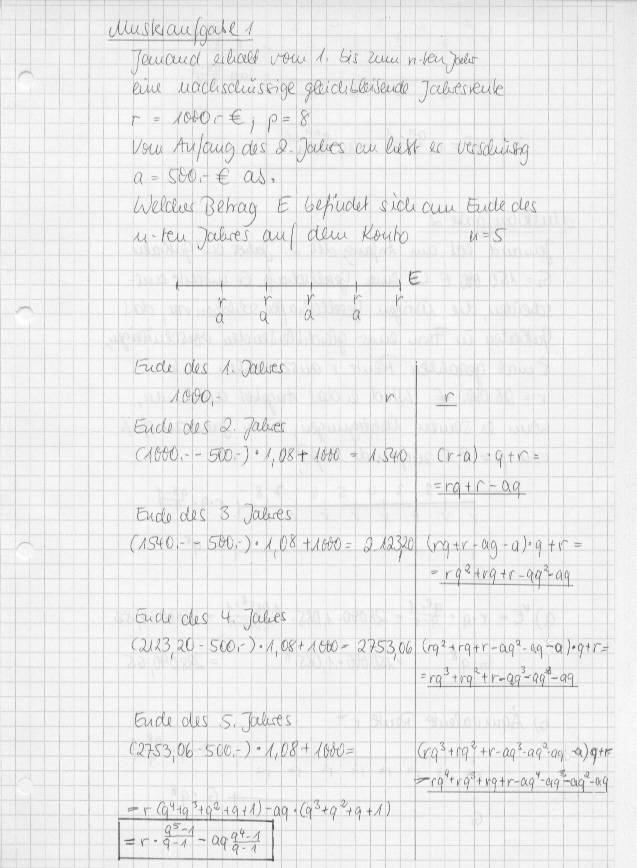 Musteraufgabe 1
Jemand erhält vom 1. bis zum n-ten Jahr
eine nachschüssige gleichbleibende Jahresrente
r = 1000,- €, p = 8
Vom Anfang des 2. Jahres an hebt er vorschüssig
a = 500,- € ab.
Welcher Betrag E befindet sich am Ende des
n-ten Jahres auf dem Konto n = 5
E
r r r r r
a a a a
Ende des 1. Jahres
1000,- r r
Ende des 2. Jahres
(1000,- - 500,-) · 1,08 + 1000 = 1.540 (r-a) · q + r =
= rq + r - aq
Ende des 3 Jahres
(1540,- - 500,-) · 1,08 + 1000 = 2123,20 (rq + r - aq - a) · q + r =
= rq² + rq + r - aq² - aq
Ende des 4. Jahres
(2123,20 - 500,-) · 1,08 + 1000 = 2753,06 (rq² + rq + r - aq² - aq - a) · q + r =
= rq³ + rq² + r - aq³ - aq² - aq
Ende des 5. Jahres
(2753,06 - 500,-) · 1,08 + 1000 = (rq³ + rq² + r - aq³ - aq² - aq - a) q + r
= rq⁴ + rq³ + rq + r - aq⁴ - aq³ - aq² - aq
= r (q⁴ + q³ + q² + q + 1) - aq · (q³ + q² + q + 1)
= r · (q⁵-1)/(q-1) - aq (q⁴-1)/(q-1)